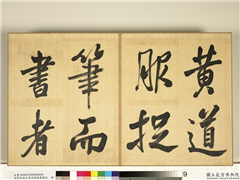 黄道
服捉
筆而
書者
9
國立故宮博物院